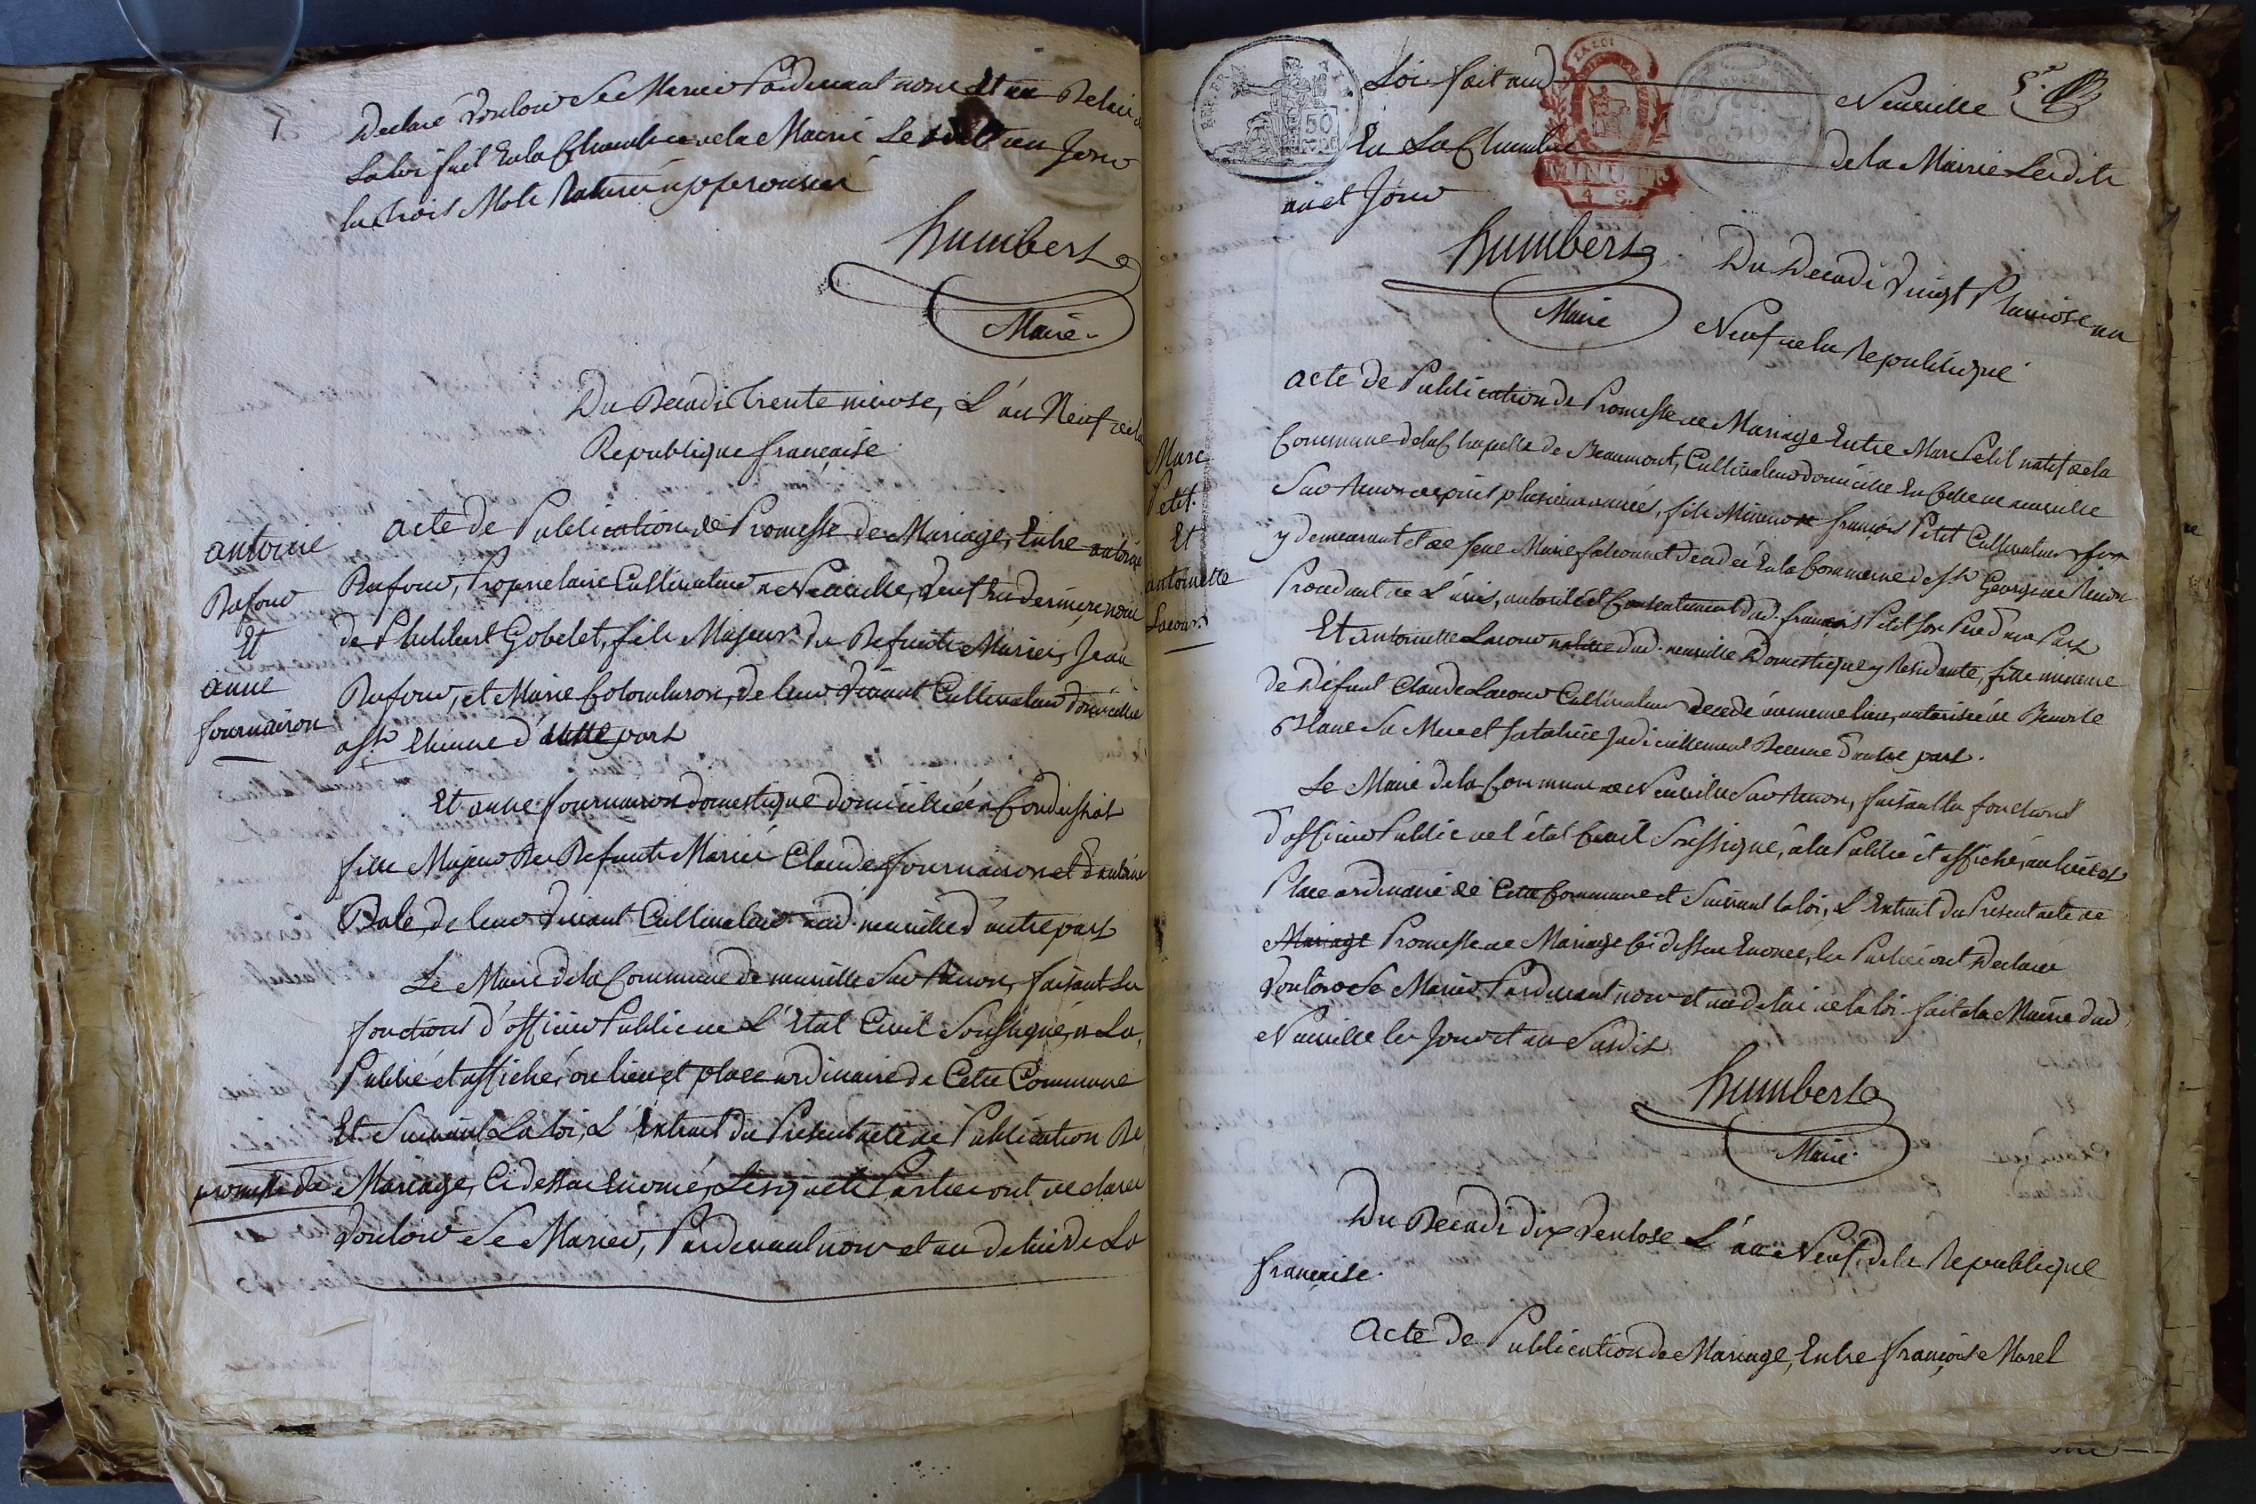 Declaré Vouloir Se Marier Pardevant nous Et au Delai de
La loi fait En la Chambre de la Mairie Lesdits an Jour
les trois Mots Raturés approuvés
humbert
Maire
Du Decadi trente nivose, L'an Neuf de la
Republique française
antoine
Rufour
Et
anne
fournairon
acte de Publication de Promesse de Mariage, Entre antoine
Rufour, Proprietaire Cultivateur a Neuville, Veuf En dernieres noces
de Philiberte Gobelet, fils Majeur de Defunts Mariés Jean
Rufour, et Marie Colomberon, de leur Vivant Cultivateur domiciliés
a St Etienne d'autre part
Et anne fournairon domestique domiciliée a Condeissiat
fille Majeur De Defunts Mariés Claude fournairon et d'antoinette
Bole, de leur Vivant Cultivateur aud. neuville d'autre part
Le Maire de la Commune de neuville Sur Renon, faisant les
fonctions d'officier Public de L'Etat Civil Soussigné, a Lu,
Publié et affiché, au lieu et place ordinaire de Cette Commune
Et Suivant La loi, L'Extrait du Present acte de Publication De
promesse de Mariage, Ci dessus Enoncé, Lesquels Parties ont declaré
Vouloir Se Marier, Pardevant nous et au delai de La
BEP. FRA.
50
CENT
LA LOI
MINUTE
4 S.
Loi fait aud Neuville 5e
En La Chambre de la Mairie Lesdits
an et Jour
humbert
Maire
Du Decadi Vingt Pluviose an
Neuf de la Republique
Marc
Petit
Et
antoinette
Lacour
acte de Publication de Promesse de Mariage Entre Marc Petit natif de la
Commune de la Chapelle de Beaumont, Cultivateur domicilié En Celle de neuville
Sur Renon depuis plusieurs années, fils Mineur de françois Petit Cultivateur
y demeurant et de feue Marie falconnet decedée En la Commune de St George de Renon
Procedant de L'avis, autorité et Consentement dud. françois Petit Son Pere d'une Part
Et antoinette Lacour native dud. neuville Domestique y Residante, fille mineure
de Défunt Claude Lacour Cultivateur decedé au meme lieu, autorisée de Benoite
Sa Mere et Sa tutrice Judiciellement Receue d'autre part.
Le Maire de la Commune de Neuville Sur Renon, faisant les fonctions
d'officier Public de l'état Civil Soussigné, a lu Publié et affiché, au lieu et
Place ordinaire de Cette Commune et Suivant la loi, L'Extrait du Present acte de
Mariage Promesse de Mariage Ci dessus Enoncé, les Parties ont Declaré
Vouloir Se Marier Pardevant nous et au delai de la loi fait a la Mairie dud.
Neuville les Jour et an Susdits
humbert
Maire
Du Decadi dix Ventose L'an Neuf de la Republique
française.
Acte de Publication de Mariage, Entre françois Morel